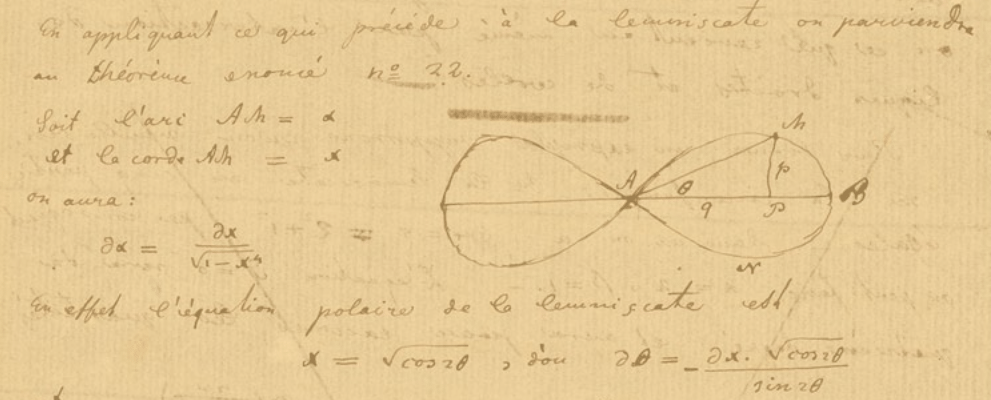 En appliquant ce qui précède à la lemniscate on parviendra
au théorème enoncé nº 22.
Soit l'arc AM = α
et la corde AM = x
on aura :
∂α = ∂x / √1 - x⁴
A M θ p q P B N
En effet l'équation polaire de la lemniscate est
x = √cos2θ , d'où ∂θ = - ∂x. √cos2θ / sin 2θ